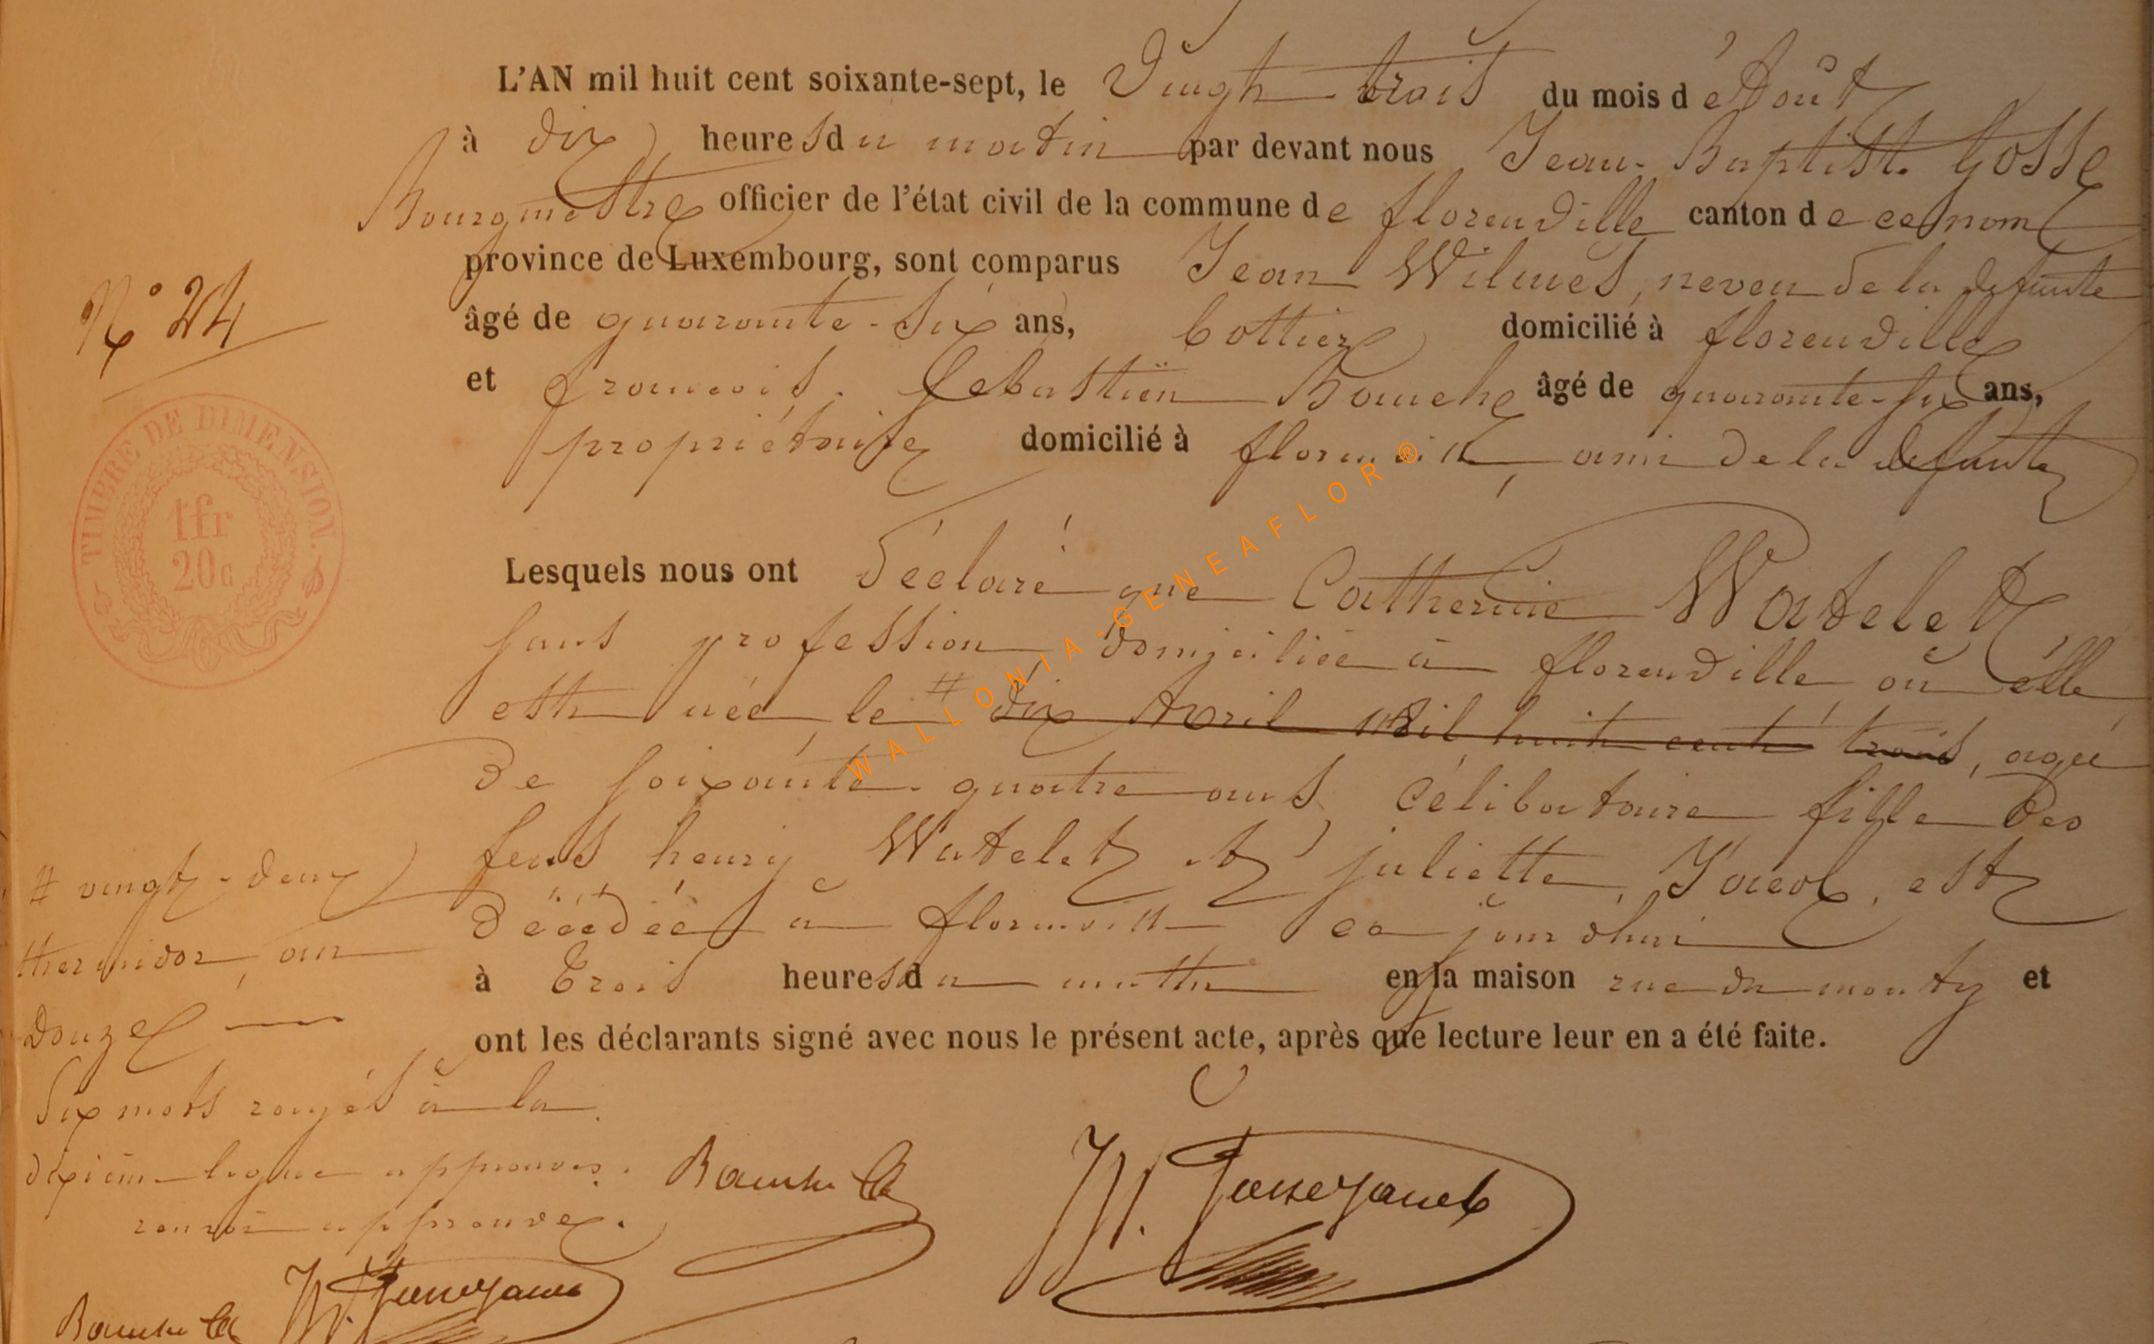 L'AN mil huit cent soixante-sept, le Vingt trois du mois d'Août
à dix heures du matin par devant nous Jean-Baptiste Gosse
Bourgmestre officier de l'état civil de la commune de florenville canton de ce nom
province de Luxembourg, sont comparus Jean Wilmes, neveu de la defunte
âgé de quarante-six ans, bottier domicilié à florenville
et francois Sebastien Bouche âgé de quarante-six ans,
propriétaire domicilié à florenville, ami de la defunte
N° 24
TIMBRE DE DIMENSION.
1fr
20c
Lesquels nous ont déclaré que Catherine Watelet
sans profession domiciliée à florenville où elle
est née le # dix Avril mil huit cent trois, agée
de soixante-quatre ans, célibataire fille des
feus henry Watelet et juliette est
décédée à florenville ce jour d'hui
à trois heures du matin en la maison rue du monty et
ont les déclarants signé avec nous le présent acte, après que lecture leur en a été faite.
# vingt-deux
thermidor, an
douze
Six mots rayés à la
dixième ligne approuvés.
renvoi approuvé.
WALLONIA-GENEAFLOR®